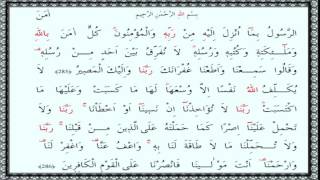 بِسْمِ اللهِ الرَّحْمٰنِ الرَّحِيْمِ اٰمَنَ
الرَّسُوْلُ بِمَآ اُنْزِلَ اِلَيْهِ مِنْ رَبِّهٖ وَالْمُؤْمِنُوْنَ كُلٌّ اٰمَنَ بِاللهِ
وَمَلٰٓئِكَتِهٖ وَكُتُبِهٖ وَرُسُلِهٖ لَا نُفَرِّقُ بَيْنَ اَحَدٍ مِنْ رُسُلِهٖ
وَقَالُوْا سَمِعْنَا وَاَطَعْنَا غُفْرَانَكَ رَبَّنَا وَاِلَيْكَ الْمَصِيْرُ 285﴿ لَا
يُكَلِّفُ اللهُ نَفْسًا اِلَّا وُسْعَهَا لَهَا مَا كَسَبَتْ وَعَلَيْهَا مَا
اكْتَسَبَتْ رَبَّنَا لَا تُؤَاخِذْنَآ اِنْ نَسِيْنَآ اَوْ اَخْطَاْنَا رَبَّنَا وَلَا
تَحْمِلْ عَلَيْنَآ اِصْرًا كَمَا حَمَلْتَهُ عَلَى الَّذِيْنَ مِنْ قَبْلِنَا رَبَّنَا
وَلَا تُحَمِّلْنَا مَا لَا طَاقَةَ لَنَا بِهٖ وَاعْفُ عَنَّا وَاغْفِرْ لَنَا
وَارْحَمْنَا اَنْتَ مَوْلٰينَا فَانْصُرْنَا عَلَى الْقَوْمِ الْكَافِرِيْنَ 286﴿